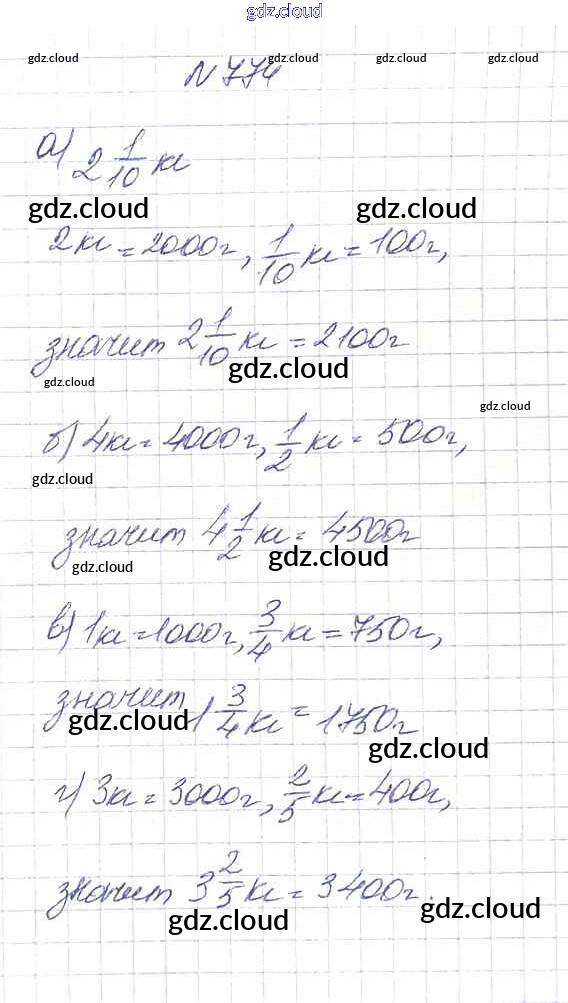 gdz.cloud
gdz.cloud gdz.cloud gdz.cloud
N 774
а) 2 1/10 кг
gdz.cloud gdz.cloud
2кг = 2000г, 1/10 кг = 100г,
значит 2 1/10 кг = 2100г
gdz.cloud
gdz.cloud
gdz.cloud
б) 4кг = 4000г, 1/2 кг = 500г,
gdz.cloud
значит 4 1/2 кг = 4500г
gdz.cloud gdz.cloud
в) 1кг = 1000г, 3/4 кг = 750г,
значит 1 3/4 кг = 1750г
gdz.cloud gdz.cloud
г) 3кг = 3000г, 2/5 кг = 400г,
значит 3 2/5 кг = 3400г.
gdz.cloud gdz.cloud